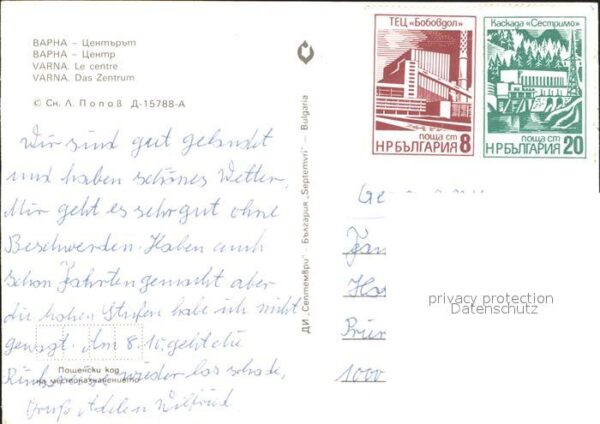 ВАРНА – Центърът
ВАРНА – Центр
VARNA. Le centre
VARNA. Das Zentrum
© Сн. Л. Попов Д-15788-А
ТЕЦ „Бобовдол"
поща ст
НР БЪЛГАРИЯ 8
Каскада „Сестримо"
поща ст
НР БЪЛГАРИЯ 20
ДИ „Септември" – България „Septemvri" – Bulgaria
Wir sind gut gelandet
und haben schönes Wetter,
Mir geht es sehr gut ohne
Beschwerden. Haben auch
schon Fahrten gemacht aber
die hohen Stufen habe ich nicht
gewagt. Am 8. 10. geht die
wieder los schade,
Gruß Wilfried
Пощенски код
на местоназначението
Ge
Fam
Ha
1000
privacy protection
Datenschutz